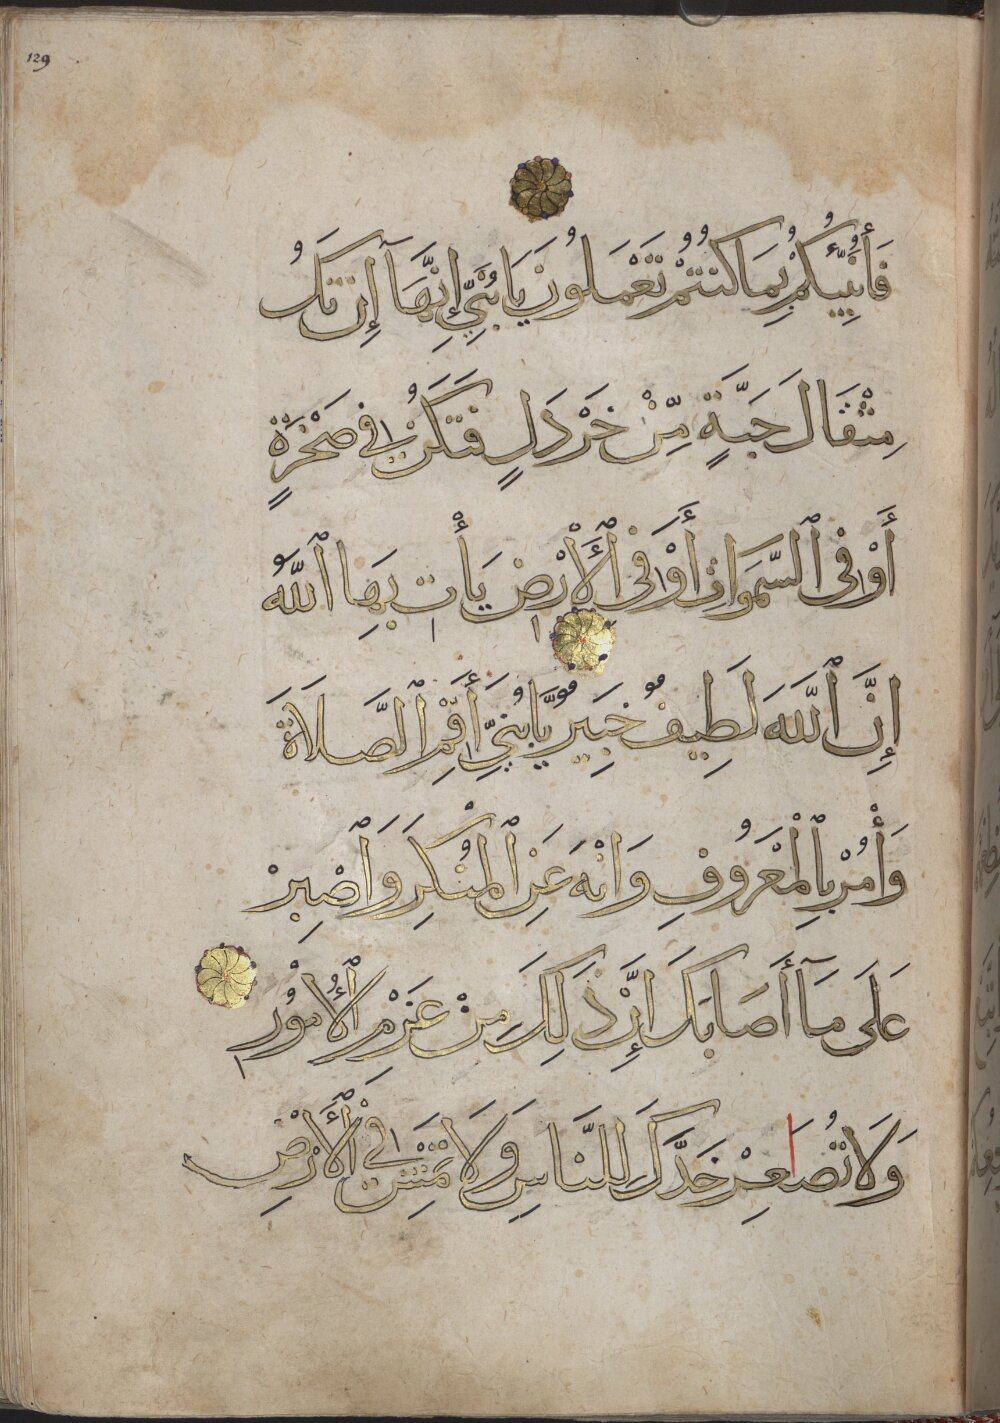 129
فَأُنَبِّئُكُمْ بِمَا كُنتُمْ تَعْمَلُونَ يَا بُنَيِّ إِنَّهَآ إِن تَكُ
مِثْقَالَ حَبَّةٍ مِّنْ خَرْدَلٍ فَتَكُن فِي صَخْرَةٍ
أَوْ فِي ٱلسَّمَوَاتِ أَوْ فِي ٱلْأَرْضِ يَأْتِ بِهَا ٱللَّهُ
إِنَّ ٱللَّهَ لَطِيفٌ خَبِيرٌ يَا بُنَيِّ أَقِمِ ٱلصَّلَاةَ
وَأْمُرْ بِٱلْمَعْرُوفِ وَانْهَ عَنِ ٱلْمُنْكَرِ وَٱصْبِرْ
عَلَى مَآ أَصَابَكَ إِنَّ ذَلِكَ مِنْ عَزْمِ ٱلْأُمُوْرِ
وَلَا تُصَاعِرْ خَدَّكَ لِلنَّاسِ وَلَا تَمْشِ فِي ٱلْأَرْضِ